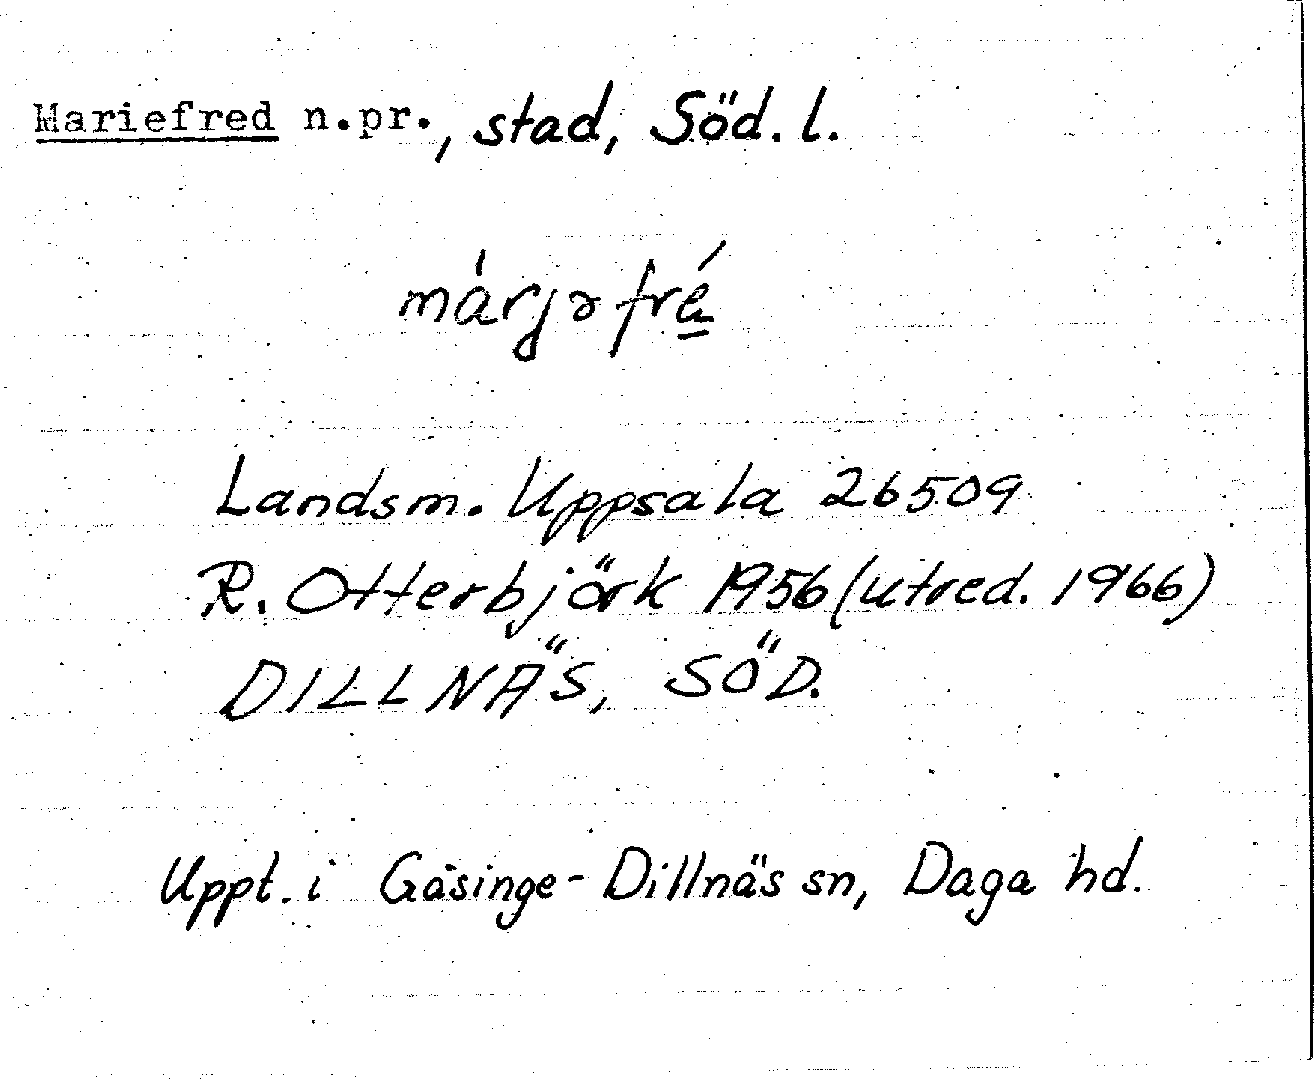 Mariefred n.pr., stad, Söd. l.
márjəfré̱
Landsm. Uppsala 26509
R. Otterbjörk 1956 (utred. 1966)
DILLNÄS, SÖD.
Uppt. i Gåsinge-Dillnäs sn, Daga hd.